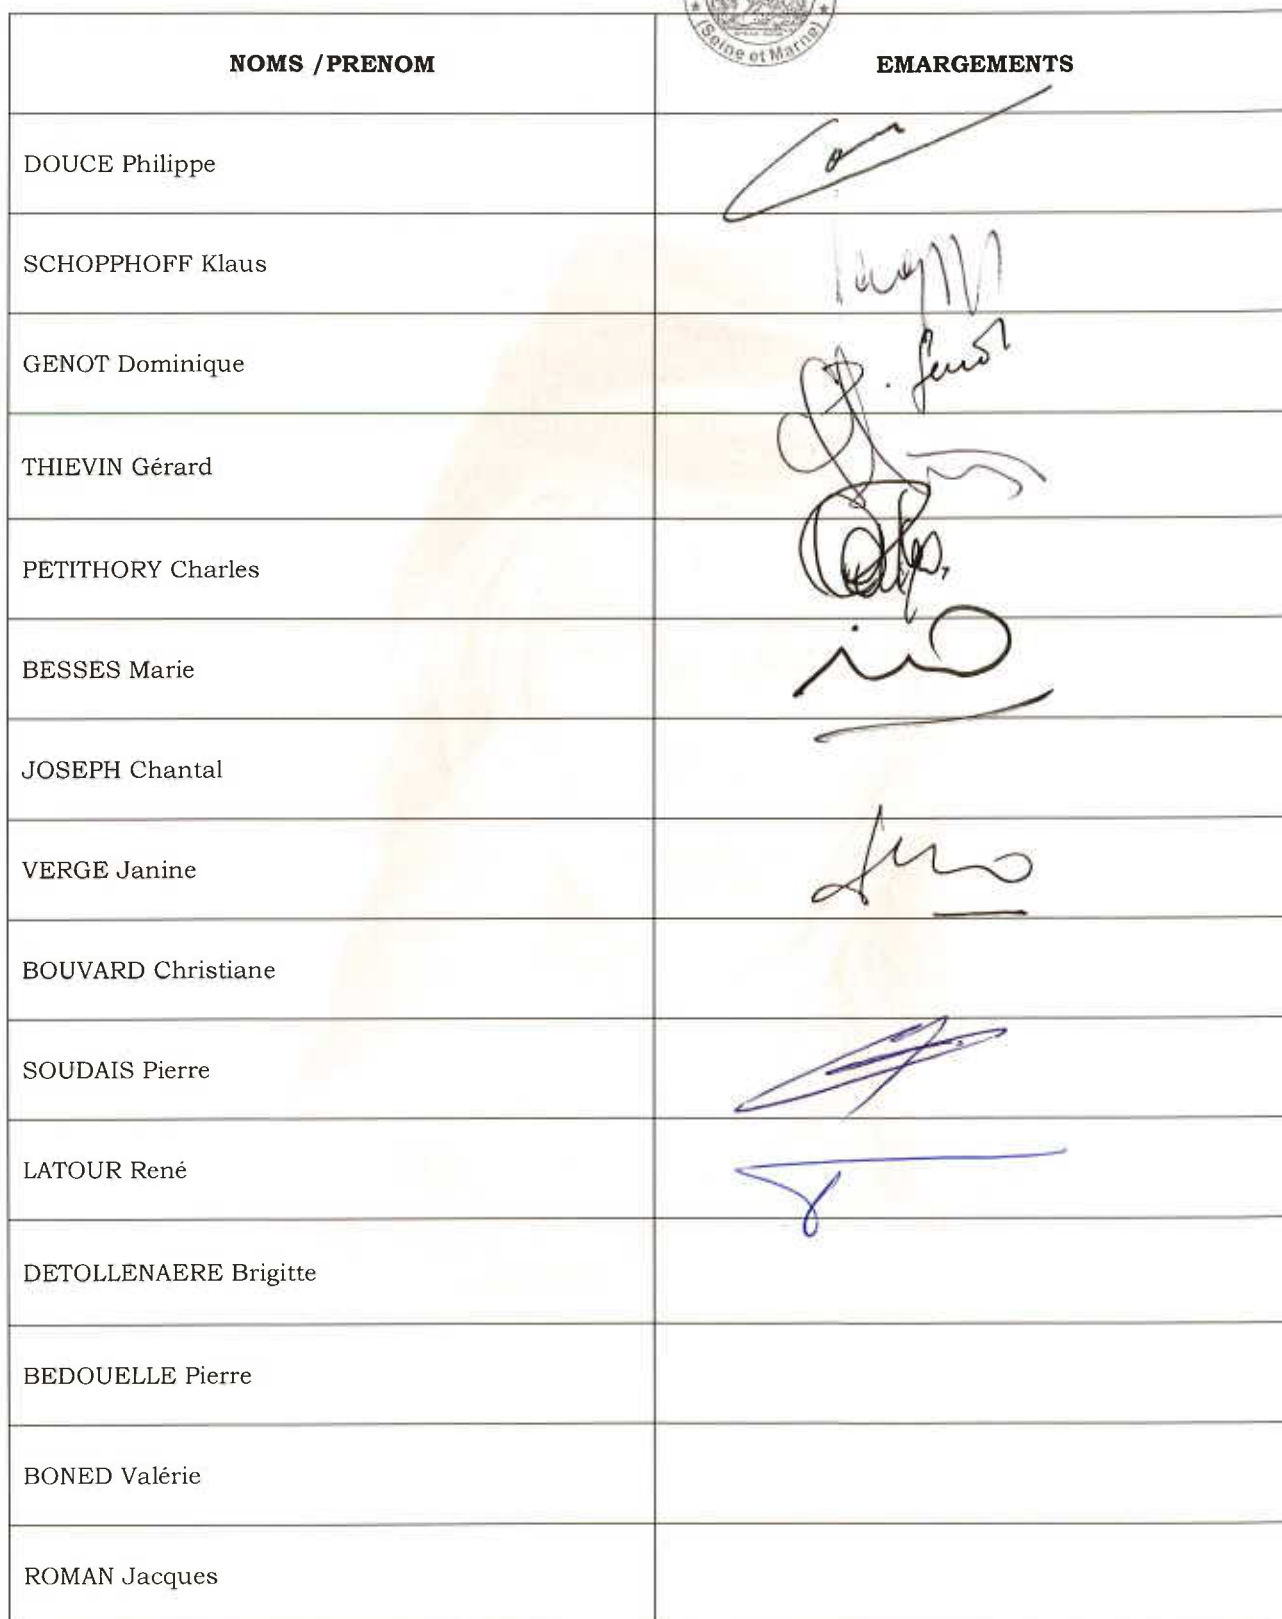 (Seine et Marne)
NOMS / PRENOM
EMARGEMENTS
DOUCE Philippe
SCHOPPHOFF Klaus
GENOT Dominique
Genot
THIEVIN Gérard
PETITHORY Charles
BESSES Marie
JOSEPH Chantal
VERGE Janine
BOUVARD Christiane
SOUDAIS Pierre
LATOUR René
DETOLLENAERE Brigitte
BEDOUELLE Pierre
BONED Valérie
ROMAN Jacques